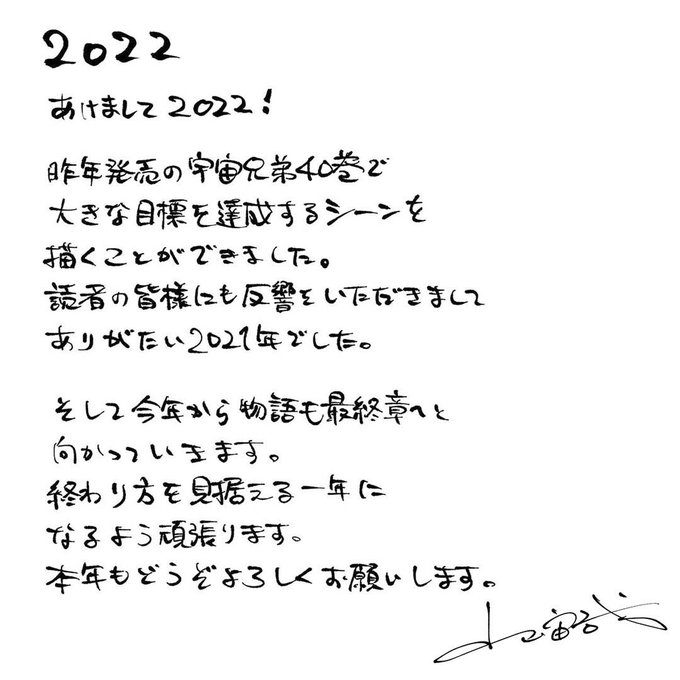 2022
あけまして2022!
昨年発売の宇宙兄弟40巻で
大きな目標を達成するシーンを
描くことができました。
読者の皆様にも反響をいただきまして
ありがたい2021年でした。
そして今年から物語も最終章へと
向かっていきます。
終わり方を見据える一年に
なるよう頑張ります。
本年もどうぞよろしくお願いします。